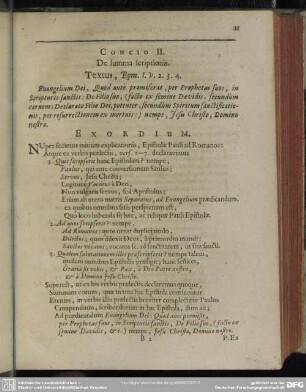 11
Concio II.
De summa scriptionis.
Textus, Rom. I. v. 2. 3. 4.
Evangelium Dei, Quod ante promiserat, per Prophetas suos, in
Scripturis sanctis: De Filio suo, (facto ex semine Davidis, secundum
carnem: Declarato Filio Dei, potenter, secundum Spiritum sanctificatio-
nis, per resurrectionem ex mortuis:) nempe, Jesu Christo, Domino
nostro.
Exordium.
Nuper secuimus initium explicationis, Epistolæ Pauli ad Romanos:
Atque ex verbis prælectis, vers. 1. declaravimus
1. Quis scripserit hanc Epistolam? nempe,
Paulus, qui ante conversationem Saulus;
Servus, Jesu Christi;
Legitime Vocatus à Deo,
Non vulgaris servus, sed Apostolus;
Etiam ab utero matris Separatus, ad Evangelium prædicandum.
ex quibus omnibus satis perspicitur est,
Quo loco habenda sit hæc, ac reliquæ Pauli Epistolæ.
2. Ad quos scripserit? nempe,
Ad Romanos; quos ornat
Dilectos; quos dilexit Deus, à primordio mundi;
Sanctos vocatos; vocatos sc. ad sanctitatem, ut sint sancti.
3. Quidnam
quidem omnibus Epistolis præfigit; hanc scilicet,
Gratia sit vobis, & Pax, à Deo Patre nostro,
& à Domino Jesu Christo.
Superest, ut ex his verbis prælectis declaremus quoque,
Summam eorum, quæ in tota hac Epistola continentur.
Etenim, in verbis istis prælectis breviter complectitur Paulus
Compendium, scribendorum in hac Epistola, dum ait;
Ad prædicandum Evangelium Dei: Quod ante promisit,
per Prophetas suos, in Scripturis sanctis, De Filio suo, (facto ex
semine Davidis, &c.) nempe, Jesu Christo, Domino nostro.
B 2 P. Ex